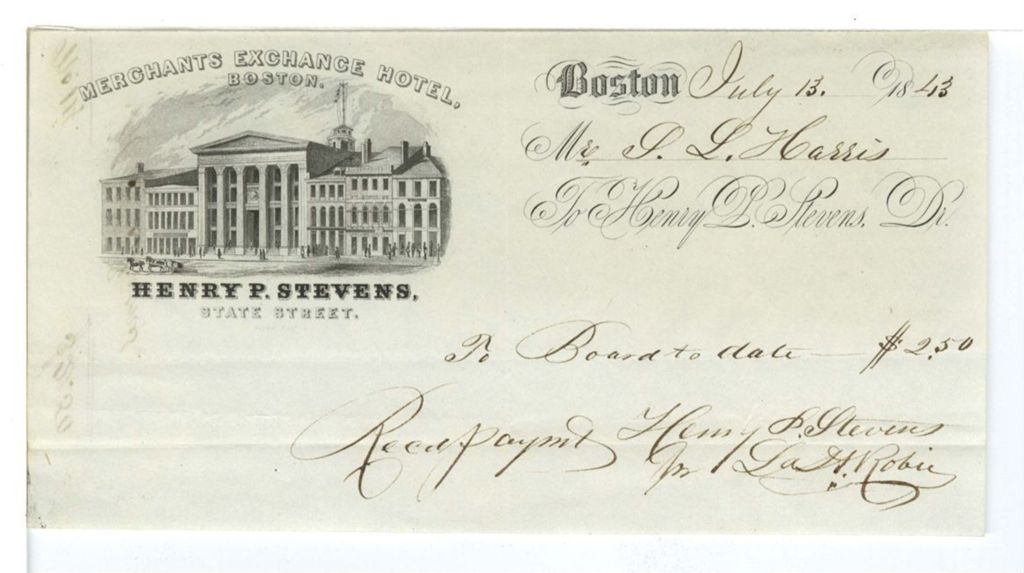 MERCHANTS EXCHANGE HOTEL,
BOSTON.
HENRY P. STEVENS,
STATE STREET.
Boston July 13. 1843
Mr. S. L. Harris
To Henry P. Stevens, Dr.
To Board to date — $2.50
Recd paymt Henry P. Stevens
pr